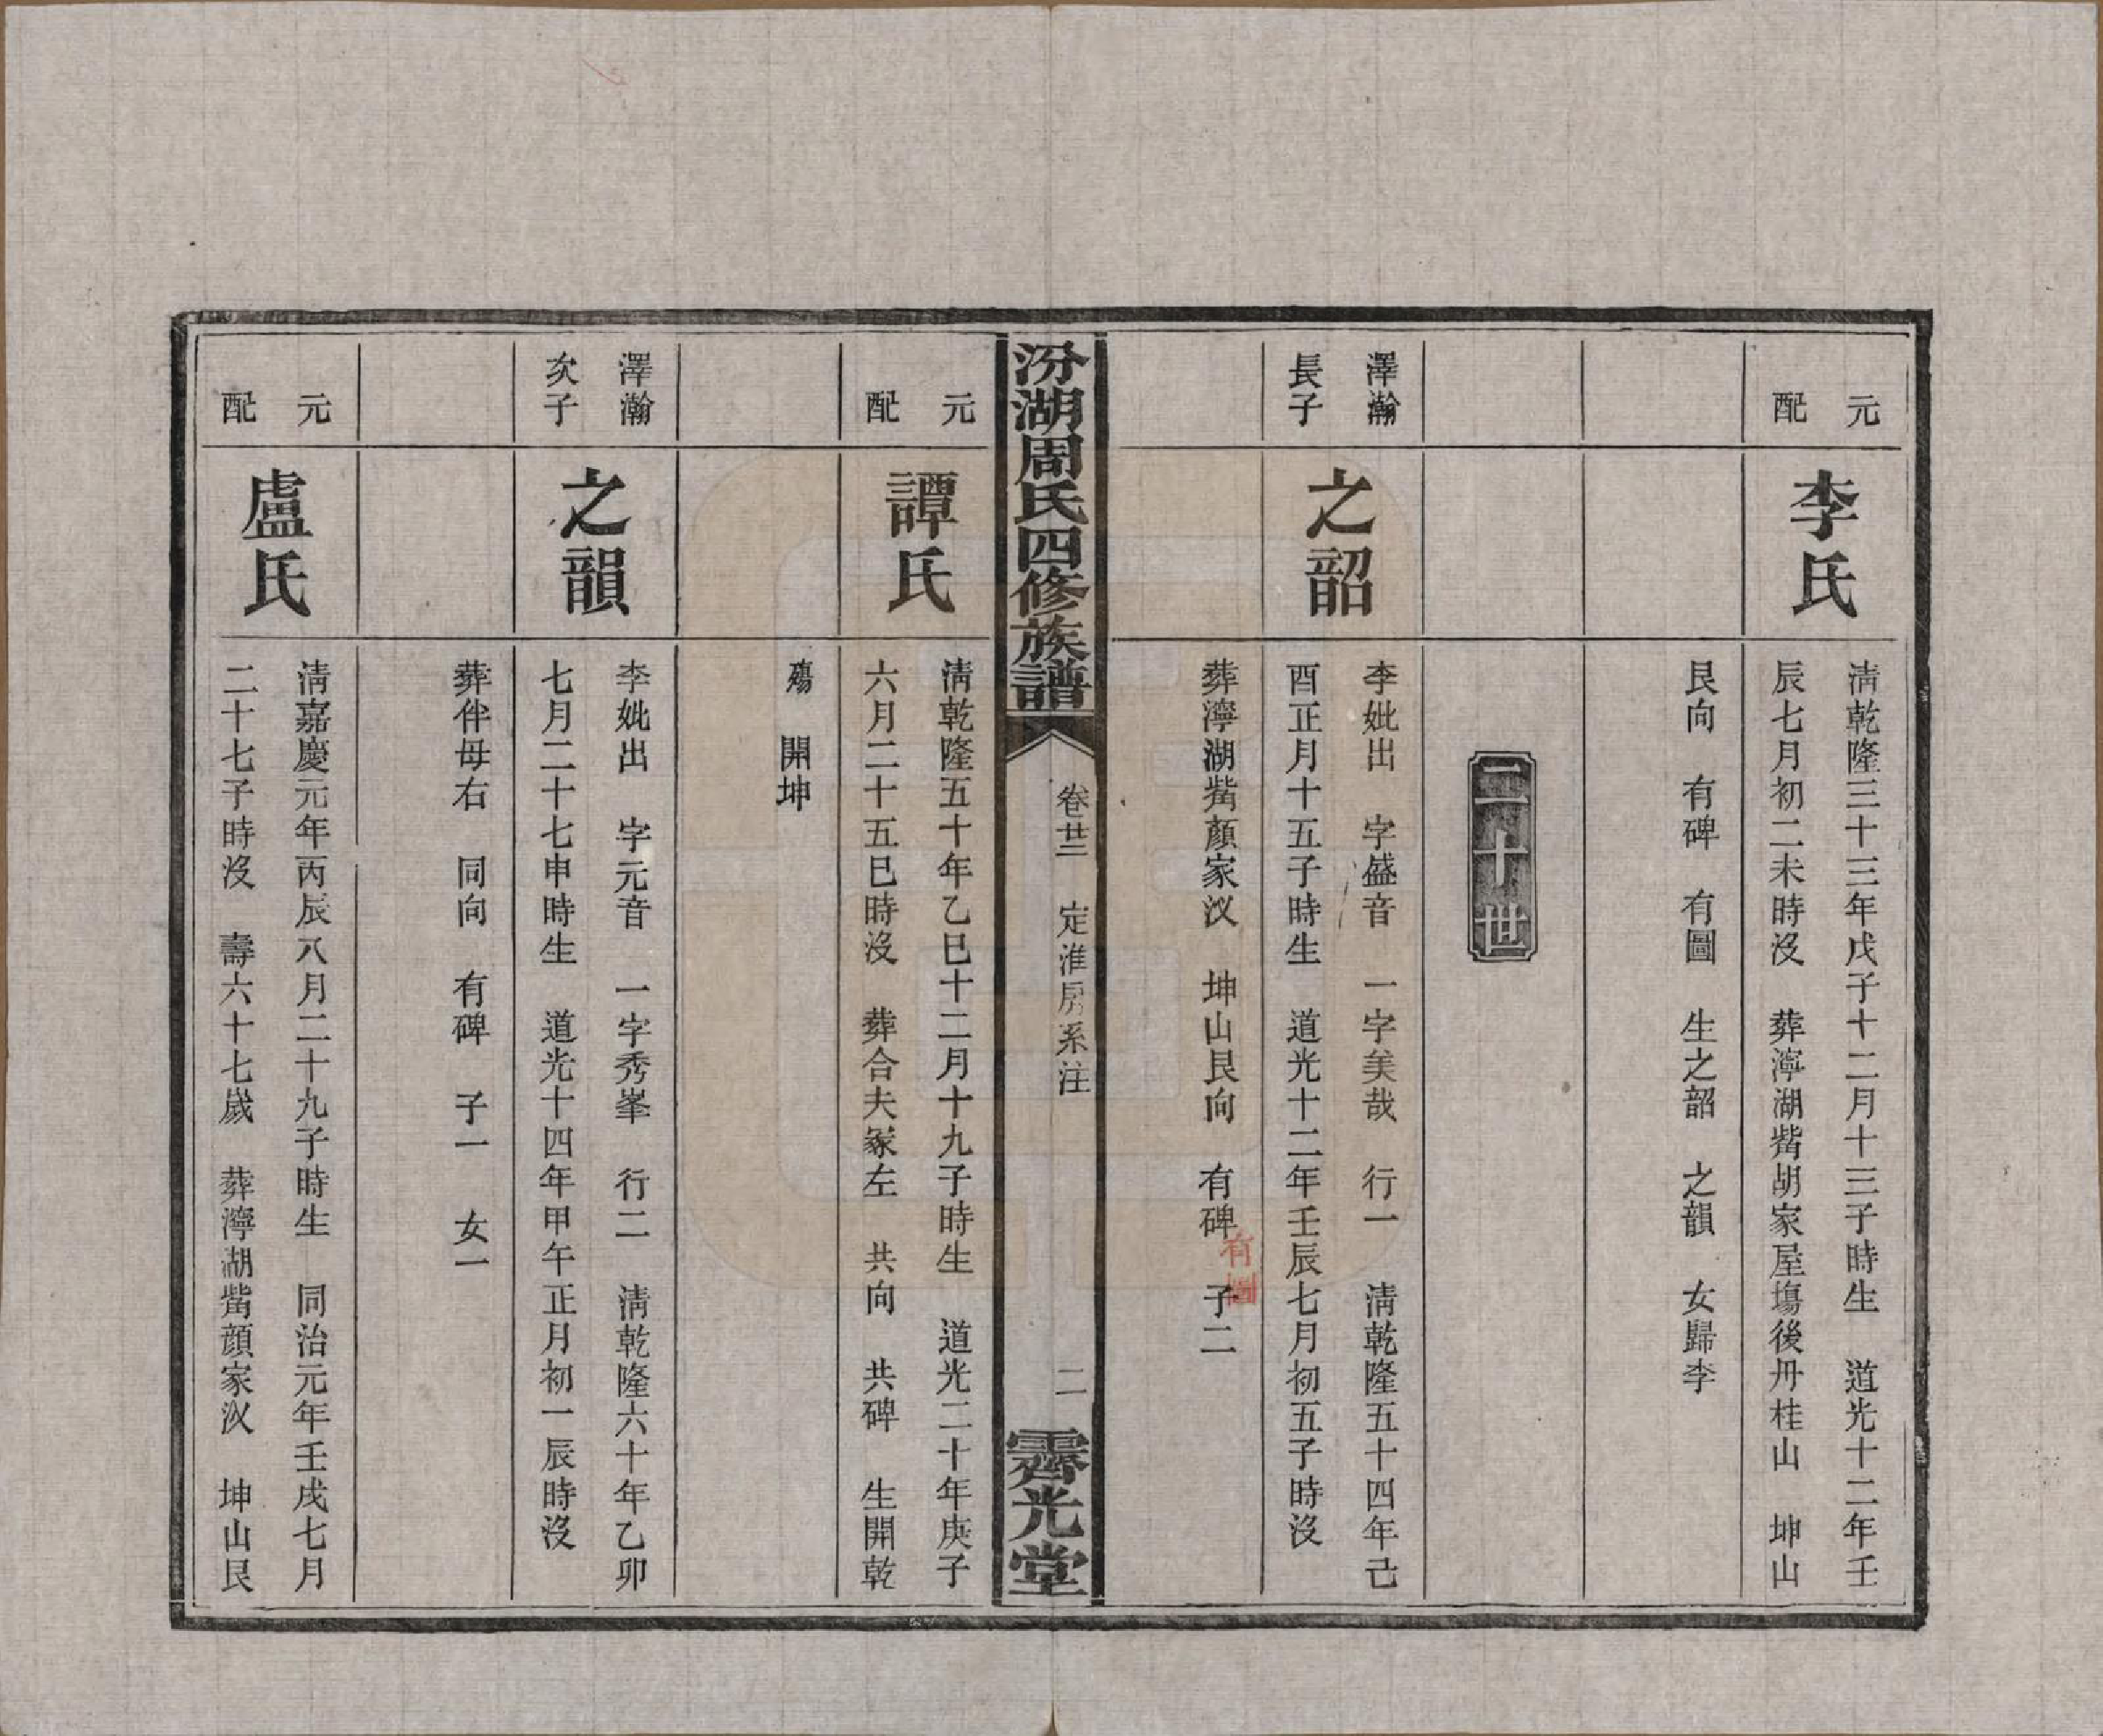 元
配
李氏
清乾隆三十三年戊子十二月十三子時生　道光十二年壬
辰七月初二未時沒　葬濘湖觜胡家屋塲後丹桂山　坤山
艮向　有碑　有圖　生之韶　之韻　女歸李
二十世
澤瀚
長子
之韶
李妣出　字盛音　一字美哉　行一　清乾隆五十四年己
酉正月十五子時生　道光十二年壬辰七月初五子時沒
葬濘湖觜顏家汊　坤山艮向　有碑　子二
有圖
汾湖周氏四修族譜
卷廿二　定淮房系注
二
霽光堂
元
配
譚氏
清乾隆五十年乙巳十二月十九子時生　道光二十年庚子
六月二十五巳時沒　葬合夫冢左　共向　共碑　生開乾
殤　開坤
澤瀚
次子
之韻
李妣出　字元音　一字秀峯　行二　清乾隆六十年乙卯
七月二十七申時生　道光十四年甲午正月初一辰時沒
葬伴母右　同向　有碑　子一　女一
元
配
盧氏
清嘉慶元年丙辰八月二十九子時生　同治元年壬戌七月
二十七子時沒　壽六十七歲　葬濘湖觜顏家汊　坤山艮